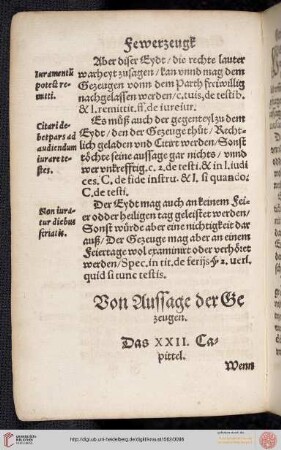 Fewerzeugk
Iuramentū
potest re-
mitti.
Aber diser Eydt / die rechte lauter
warheyt zusagen / kan vnnd mag dem
Gezeugen vonn dem Parth freiwillig
nachgelassen werden / c. tuis, de testib.
& l. remittit. ff. de iureiur.
Citari de-
bet pars ad
audiendum
iurare te-
stes.
Es můß auch der gegenteyl zu dem
Eydt / den der Gezeuge thůt / Recht-
lich geladen vnd Citirt werden / Sonst
töchte seine aussage gar nichts / vnnd
wer vnkrefftig. c. 2. de testi. & in l. iudi
ces. C. de fide instru. & l. si quando:
C. de testi.
Non iura-
tur diebus
feriatis.
Der Eydt mag auch an keinem Fei-
er odder heiligen tag geleistet werden /
Sonst würde aber eine nichtigkeit dar
auß / Der Gezeuge mag aber an einem
Feiertage wol examinirt oder verhöret
werden / Spec. in tit. de ferijs § 2. uerl.
quid si tunc testis.
Von Aussage der Ge
zeugen.
Das XXII. Ca-
pittel.
Wenn
http://digi.ub.uni-heidelberg.de/diglit/